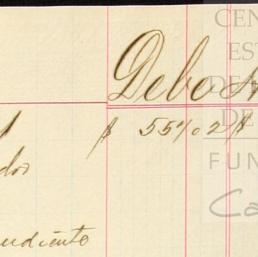 Debo
$ 55402 $
dos
endiente
CEN
EST
DE
DE
FUN
Ca